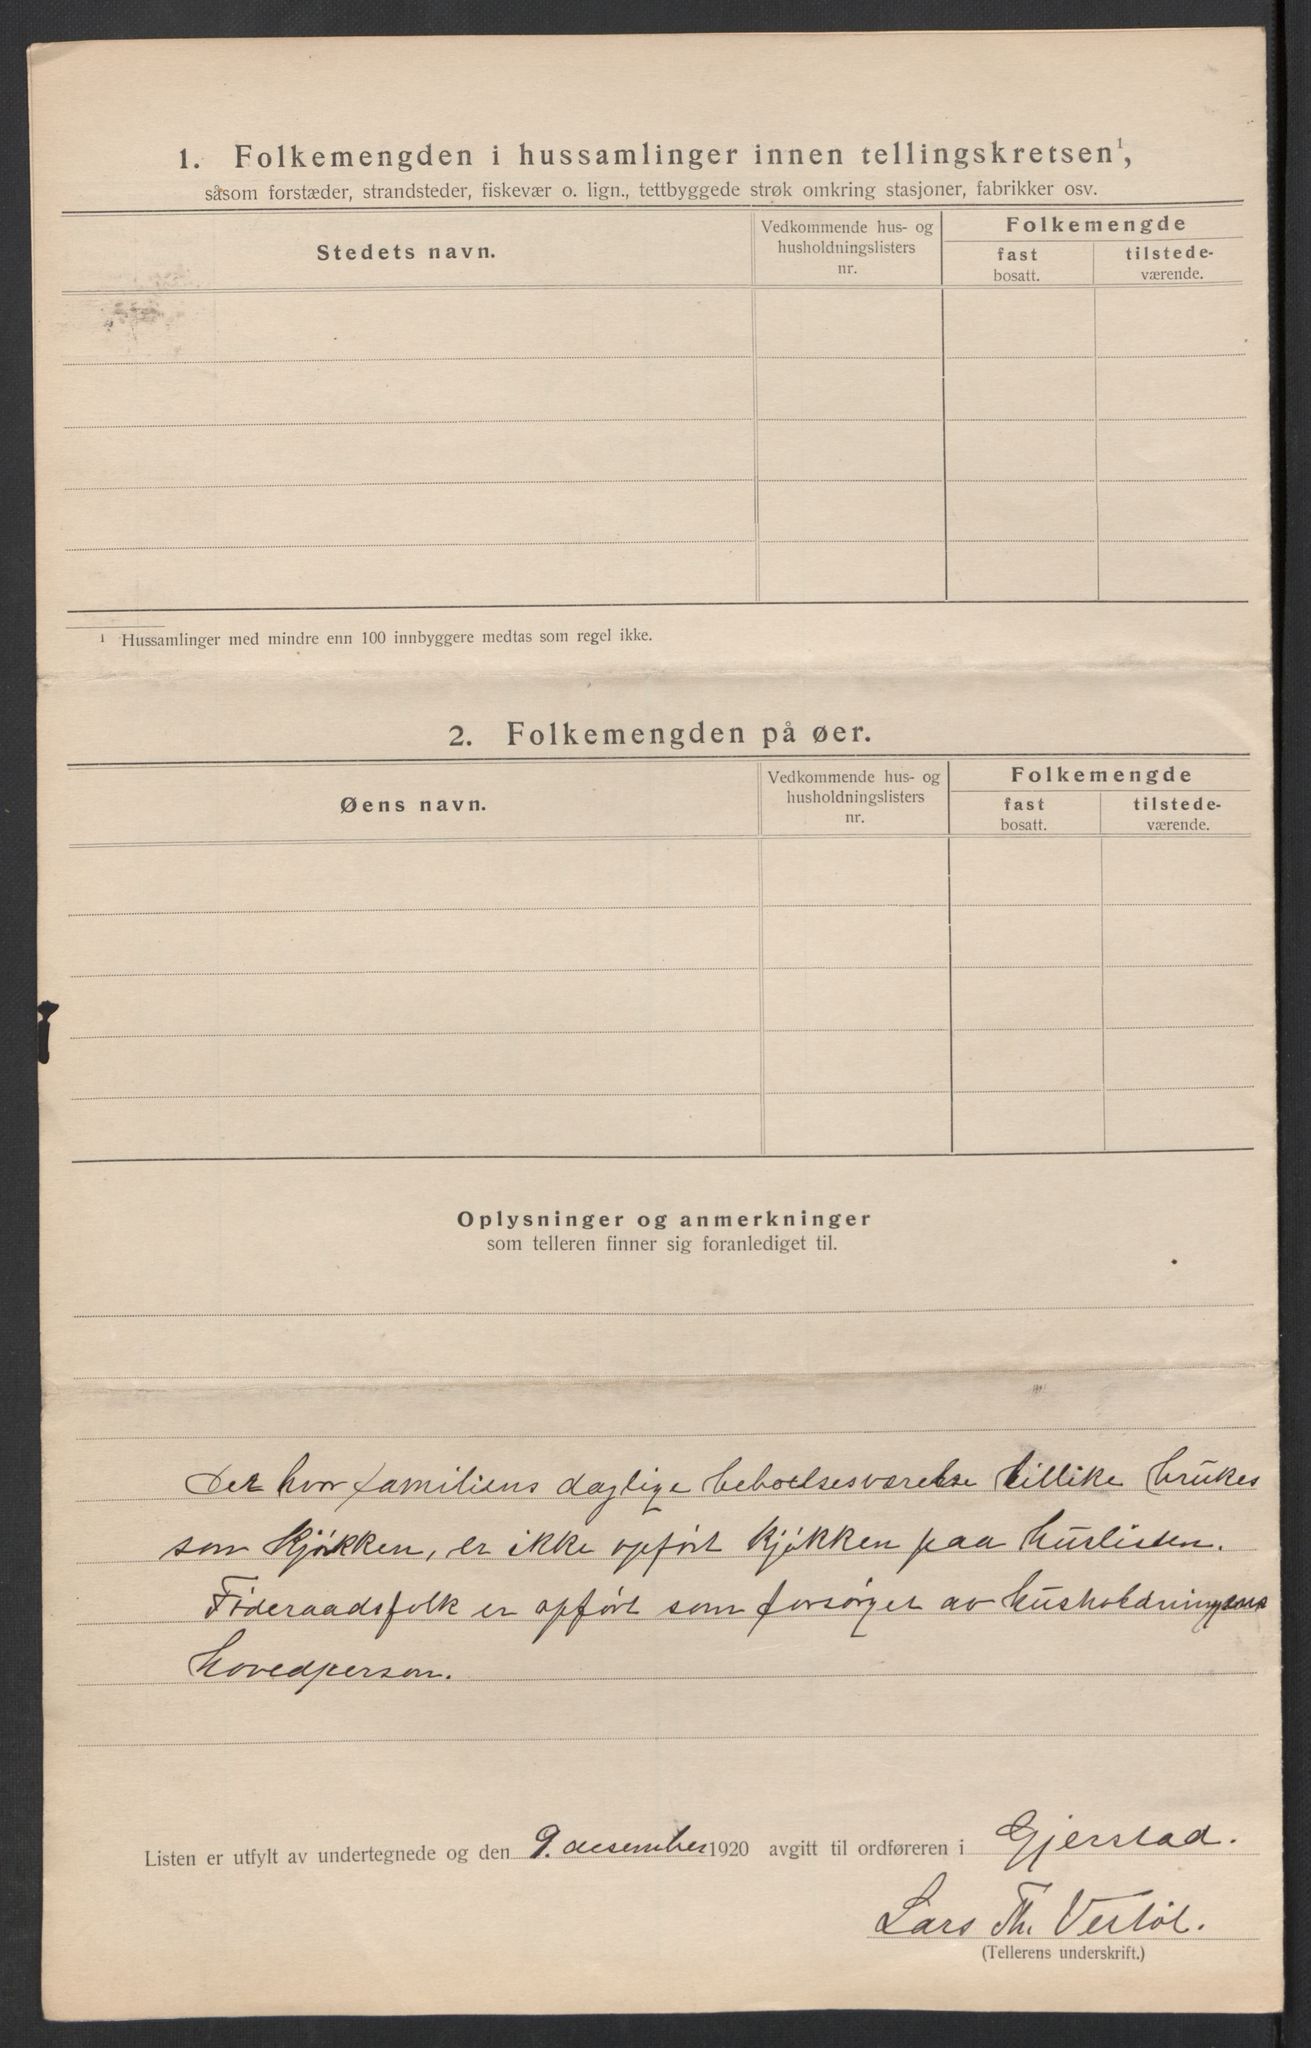 1. Folkemengden i hussamlinger innen tellingskretsen¹,
såsom forstæder, strandsteder, fiskevær o. lign., tettbyggede strøk omkring stasjoner, fabrikker osv.
Stedets navn.
Vedkommende hus- og
husholdningslisters
nr.
Folkemengde
fast
bosatt.
tilstede-
værende.
¹ Hussamlinger med mindre enn 100 innbyggere medtas som regel ikke.
2. Folkemengden på øer.
Øens navn.
Vedkommende hus- og
husholdningslisters
nr.
Folkemengde
fast
bosatt.
tilstede-
værende.
Oplysninger og anmerkninger
som telleren finner sig foranlediget til.
Der hvor familiens daglige beboelsesværelse tillike brukes
som kjøkken, er ikke opført kjøkken paa huslisten.
Føderaadsfolk er opført som forsørget av husholdningens
hovedperson.
Listen er utfylt av undertegnede og den 9. desember 1920 avgitt til ordføreren i Gjerstad.
Lars Th. Vestøl.
(Tellerens underskrift.)